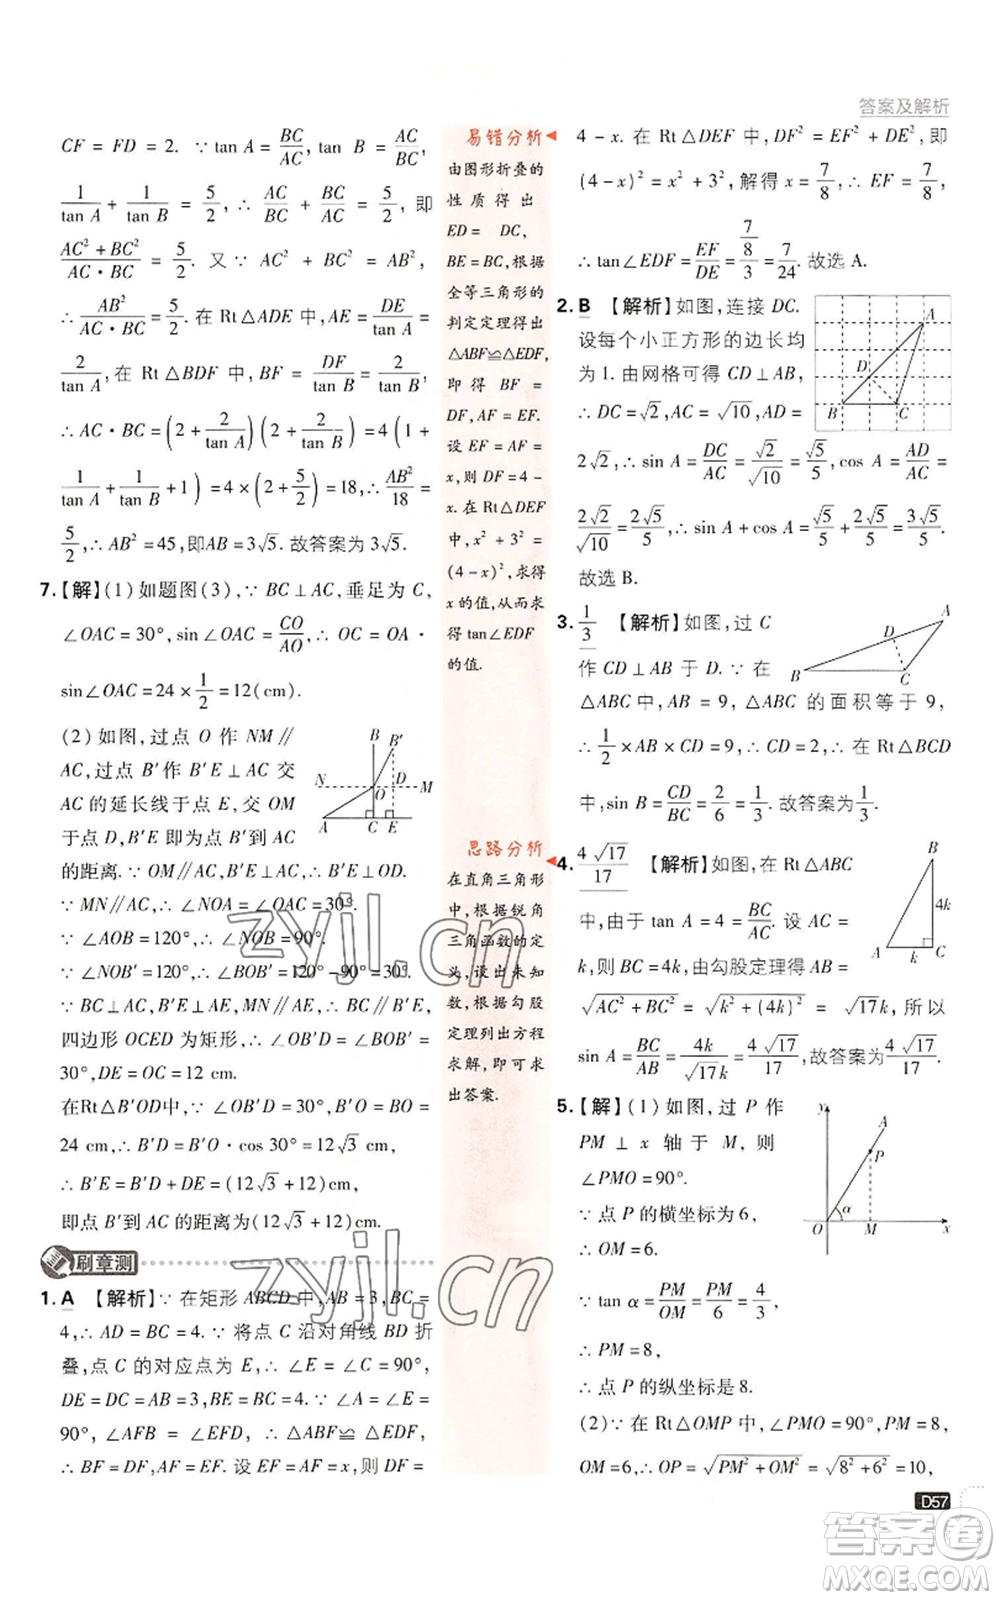 答案及解析
CF = FD = 2. ∵ tan A = BC/AC, tan B = AC/BC,
1/tan A + 1/tan B = 5/2, ∴ AC/BC + BC/AC = 5/2, 即
(AC² + BC²)/(AC·BC) = 5/2. 又 ∵ AC² + BC² = AB²,
∴ AB²/(AC·BC) = 5/2. 在 Rt△ADE 中, AE = DE/tan A =
2/tan A, 在 Rt△BDF 中, BF = DF/tan B = 2/tan B,
∴ AC·BC = (2 + 2/tan A)(2 + 2/tan B) = 4(1 +
1/tan A + 1/tan B + 1) = 4×(2 + 5/2) = 18, ∴ AB²/18 =
5/2, ∴ AB² = 45, 即AB = 3√5. 故答案为 3√5.
7.【解】(1) 如题图(3), ∵ BC⊥AC, 垂足为 C,
∠OAC = 30°, sin∠OAC = CO/AO, ∴ OC = OA·
sin∠OAC = 24 × 1/2 = 12(cm).
(2) 如图, 过点 O 作 NM∥
AC, 过点 B′作 B′E⊥AC 交
AC 的延长线于点 E, 交 OM
于点 D, B′E 即为点 B′到 AC
的距离. ∵ OM∥AC, B′E⊥AC, ∴ B′E⊥OM.
∵ MN∥AC, ∴ ∠NOA = ∠OAC = 30°.
∵ ∠AOB = 120°, ∴ ∠NOB = 90°.
∵ ∠NOB′ = 120°, ∴ ∠BOB′ = 120° - 90° = 30°.
∵ BC⊥AC, B′E⊥AE, MN∥AE, ∴ BC∥B′E,
四边形 OCED 为矩形, ∴ ∠OB′D = ∠BOB′ =
30°, DE = OC = 12 cm.
在Rt△B′OD中, ∵ ∠OB′D = 30°, B′O = BO =
24 cm, ∴ B′D = B′O·cos 30° = 12√3 cm,
∴ B′E = B′D + DE = (12√3 + 12) cm,
即点 B′到 AC 的距离为(12√3 + 12) cm.
N B B′ D M O A C E
刷章测
1. A 【解析】∵ 在矩形 ABCD 中, AB = 3, BC =
4, ∴ AD = BC = 4. ∵ 将点 C 沿对角线 BD 折
叠, 点 C 的对应点为 E, ∴ ∠E = ∠C = 90°,
DE = DC = AB = 3, BE = BC = 4. ∵ ∠A = ∠E =
90°, ∠AFB = ∠EFD, ∴ △ABF≌△EDF,
∴ BF = DF, AF = EF. 设 EF = AF = x, 则 DF =
易错分析
由图形折叠的
性质得出
ED = DC,
BE = BC, 根据
全等三角形的
判定定理得出
△ABF≌△EDF,
即得 BF =
DF, AF = EF.
设 EF = AF =
x, 则 DF = 4 -
x. 在 Rt△DEF
中, x² + 3² =
(4 - x)², 求得
x 的值, 从而求
得 tan∠EDF
的值.
思路分析
在直角三角形
中, 根据锐角
三角函数的定
义, 设出未知
数, 根据勾股
定理列出方程
求解, 即可求
出答案.
4 - x. 在 Rt△DEF 中, DF² = EF² + DE², 即
(4 - x)² = x² + 3², 解得 x = 7/8, ∴ EF = 7/8,
∴ tan∠EDF = EF/DE = (7/8)/3 = 7/24. 故选 A.
2. B 【解析】如图, 连接 DC.
设每个小正方形的边长均
为 1. 由网格可得 CD⊥AB,
∴ DC = √2, AC = √10, AD =
2√2, ∴ sin A = DC/AC = √2/√10 = √5/5, cos A = AD/AC =
2√2/√10 = 2√5/5, ∴ sin A + cos A = √5/5 + 2√5/5 = 3√5/5.
故选 B.
A D B C
3. 1/3 【解析】如图, 过 C
作 CD⊥AB 于 D. ∵ 在
△ABC 中, AB = 9, △ABC 的面积等于 9,
∴ 1/2 × AB × CD = 9, ∴ CD = 2, ∴ 在 Rt△BCD
中, sin B = CD/BC = 2/6 = 1/3. 故答案为 1/3.
A D B C
4. 4√17/17 【解析】如图, 在 Rt△ABC
中, 由于 tan A = 4 = BC/AC. 设 AC =
k, 则 BC = 4k, 由勾股定理得 AB =
√(AC² + BC²) = √(k² + (4k)²) = √17k, 所以
sin A = BC/AB = 4k/(√17 k) = 4√17/17, 故答案为 4√17/17.
B 4k A k C
5.【解】(1) 如图, 过 P 作
PM ⊥ x 轴于 M, 则
∠PMO = 90°.
∵ 点 P 的横坐标为 6,
∴ OM = 6.
∵ tan α = PM/OM = PM/6 = 4/3,
∴ PM = 8,
∴ 点 P 的纵坐标是 8.
(2) ∵ 在 Rt△OMP 中, ∠PMO = 90°, PM = 8,
OM = 6, ∴ OP = √(PM² + OM²) = √(8² + 6²) = 10,
y A P α O M x
zyjl.cn
zyjl.cn
D57
答案圈
MXQE.COM